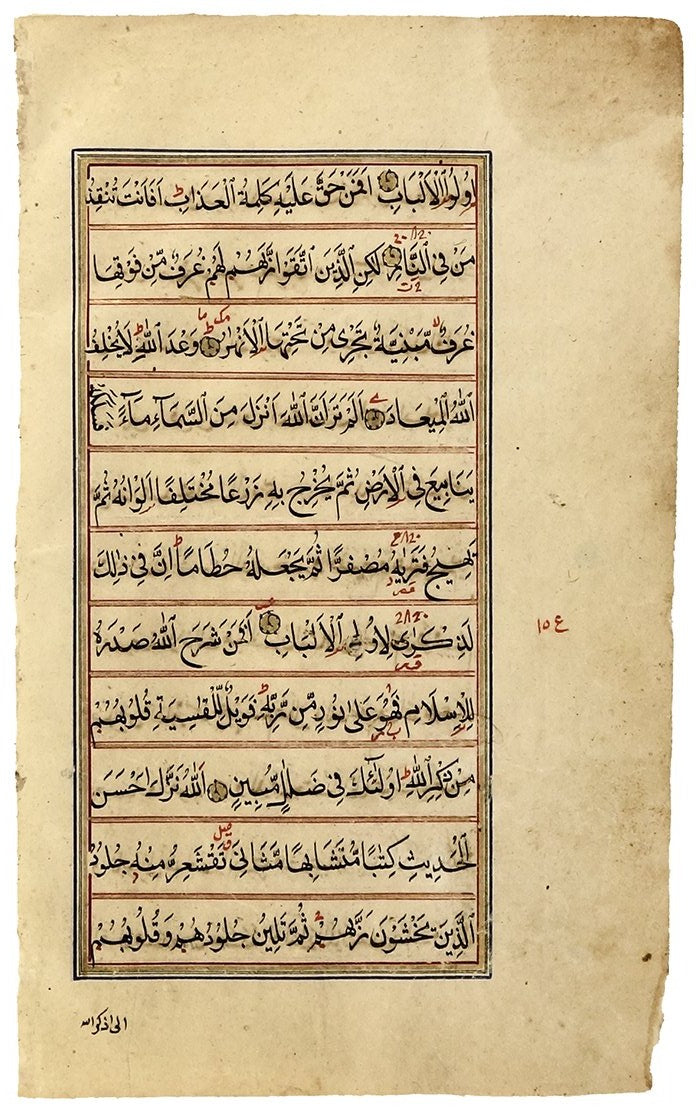 اُولُوا الْاَلْبَابِ اَفَمَنْ حَقَّ عَلَيْهِ كَلِمَةُ الْعَذَابِ اَفَاَنْتَ تُنْقِذُ
مَنْ فِى النَّارِ لٰكِنِ الَّذِينَ اتَّقَوْا رَبَّهُمْ لَهُمْ غُرَفٌ مِّنْ فَوْقِهَا
غُرَفٌ مَّبْنِيَّةٌ تَجْرِى مِنْ تَحْتِهَا الْاَنْهٰرُ وَعْدَ اللّٰهِ لَا يُخْلِفُ
اللّٰهُ الْمِيعَادَ اَلَمْ تَرَ اَنَّ اللّٰهَ اَنْزَلَ مِنَ السَّمَآءِ مَآءً
يَنَابِيعَ فِى الْاَرْضِ ثُمَّ يُخْرِجُ بِهِ زَرْعًا مُخْتَلِفًا اَلْوَانُهُ ثُمَّ
يَهِيجُ فَتَرٰيهُ مُصْفَرًّا ثُمَّ يَجْعَلُهُ حُطَامًا اِنَّ فِى ذٰلِكَ
لَذِكْرٰى لِاُولِى الْاَلْبَابِ اَفَمَنْ شَرَحَ اللّٰهُ صَدْرَهُ
لِلْاِسْلَامِ فَهُوَ عَلٰى نُورٍ مِّنْ رَّبِّهِ فَوَيْلٌ لِّلْقٰسِيَةِ قُلُوبُهُمْ
مِنْ ذِكْرِ اللّٰهِ اُولٰٓئِكَ فِى ضَلٰلٍ مُّبِينٍ اَللّٰهُ نَزَّلَ اَحْسَنَ
الْحَدِيثِ كِتٰبًا مُّتَشَابِهًا مَّثَانِىَ تَقْشَعِرُّ مِنْهُ جُلُودُ
الَّذِينَ يَخْشَوْنَ رَبَّهُمْ ثُمَّ تَلِينُ جُلُودُهُمْ وَقُلُوبُهُمْ
ع ١٥
الى ذكر الله